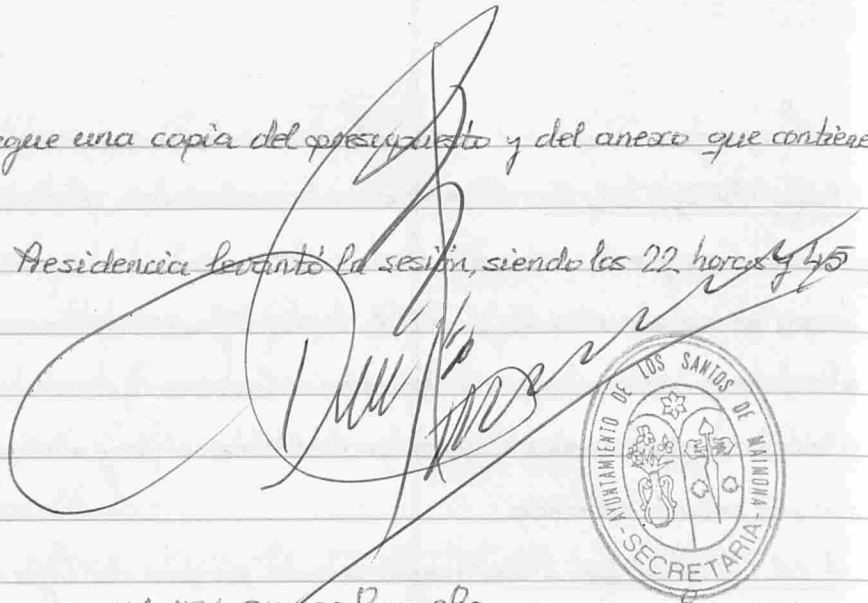 egue una copia del presupuesto y del anexo que contiene
Presidencia levantó la sesión, siendo las 22 horas y 45
AYUNTAMIENTO DE LOS SANTOS DE MAIMONA
SECRETARIA